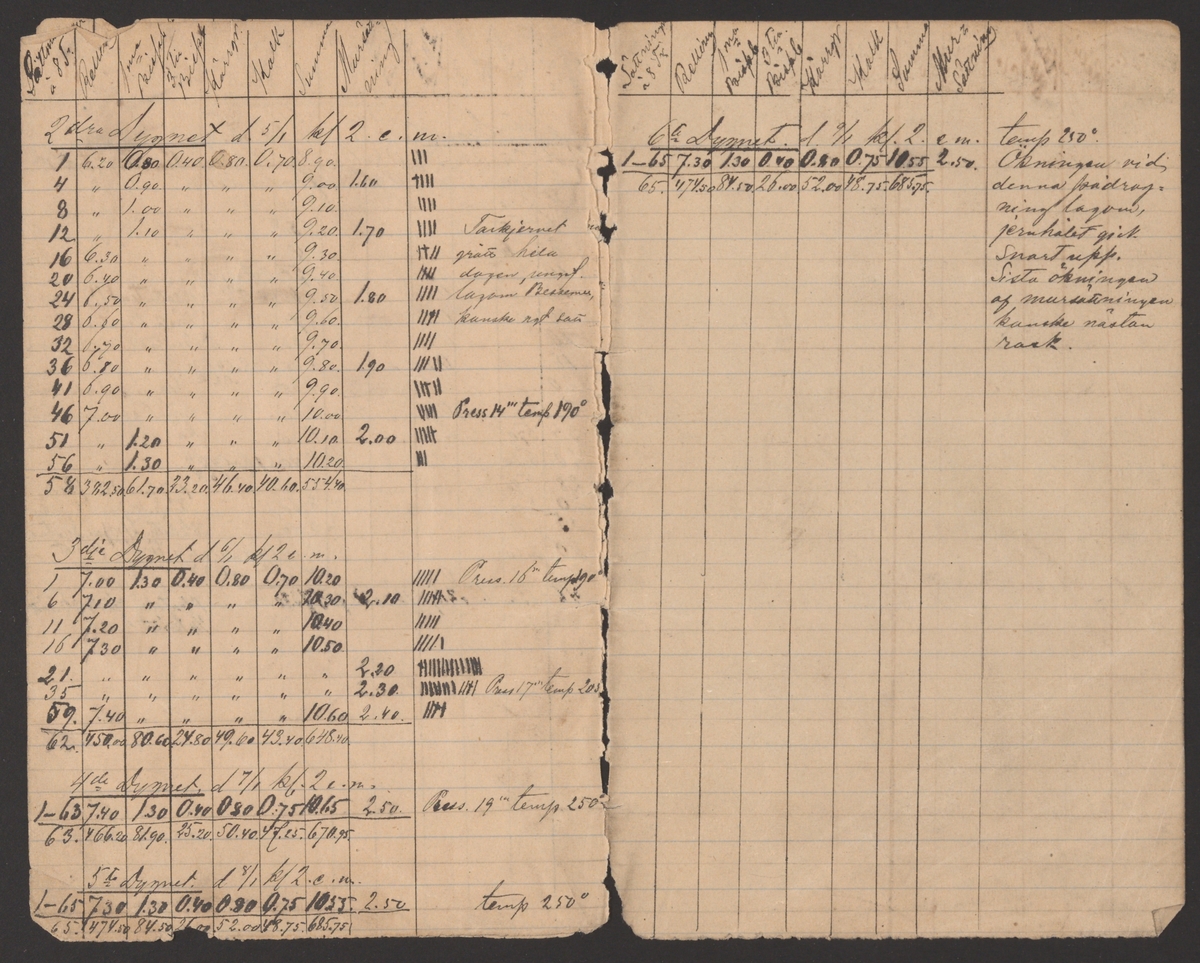 Sättning à 8 St. Rostning 1ma Bispb 3tia Bispb Kärrgr Kalk Summa Mursättning
2dra Dygnet d 5/1 kl 2 e. m.
1 6.20 0.80 0.40 0.80 0.70 8.90. III
4 " 0.90 " " " 9.00. 1.60 IIII
8 " 1.00 " " " 9.10. IIII
12 " 1.10 " " " 9.20. 1.70 IIII Tackjernet
16 6.30 " " " " 9.30. IIII gråt hela
20 6.40 " " " " 9.40. IIII dagen, ungf.
24 6.50 " " " " 9.50 1.80 IIII lagom Bessemer,
28 6.60 " " " " 9.60. IIII kanske ngt
32 6.70 " " " " 9.70 IIII
36 6.80 " " " " 9.80. 1.90 IIIII
41 6.90 " " " " 9.90. IIIII
46 7.00 " " " " 10.00 IIIII Press 14''' temp 190°
51 " 1.20 " " " 10.10 2.00 IIIII
56 " 1.30 " " " 10.20. III
58 392.50 61.70 23.20. 46.40 40.60. 554.40.
3dje Dygnet d 6/1 kl 2 e. m.
1 7.00 1.30 0.40 0.80 0.70 10.20 IIIII Press. 16''' temp 190°
6 7.10 " " " " 10.30 2.10 IIIII
11 7.20 " " " " 10.40 IIIII
16 7.30 " " " " 10.50. IIIII
21. " " " " " " 2.20
35 " " " " " " 2.30. Press 17''' temp 205
59. 7.40 " " " " 10.60 2.40. IIII
62. 450.00 80.60 24.80 49.60 43.40 648.40.
4de Dygnet. d 7/1 kl. 2 e. m.
1-63 7.40 1.30 0.40 0.80 0.75 10.65 2.50. Press. 19''' temp 250°
63. 466.20 81.90. 25.20. 50.40 47.25. 670.95
5te Dygnet. d 8/1 kl 2. e. m.
1-65 7.30 1.30 0.40 0.80 0.75 10.55. 2.50 temp 250°
65. 474.50 84.50 26.00 52.00 48.75. 685.75
Sättning à 8 St. Rostning 1ma Bispb 3tia Bispb Kärrgr Kalk Summa Mursättning
6te Dygnet. d 9/1 kl. 2. e m. temp 250°
1-65 7.30 1.30 0.40 0.80 0.75 10.55 2.50. Ökningen vid
65. 474.50 84.50 26.00 52.00 48.75. 685.75. denna pådrag=
ning lagom,
jernhålet gick
snart upp.
Sista ökningen
af mursättningen
kanske nästan
rask.